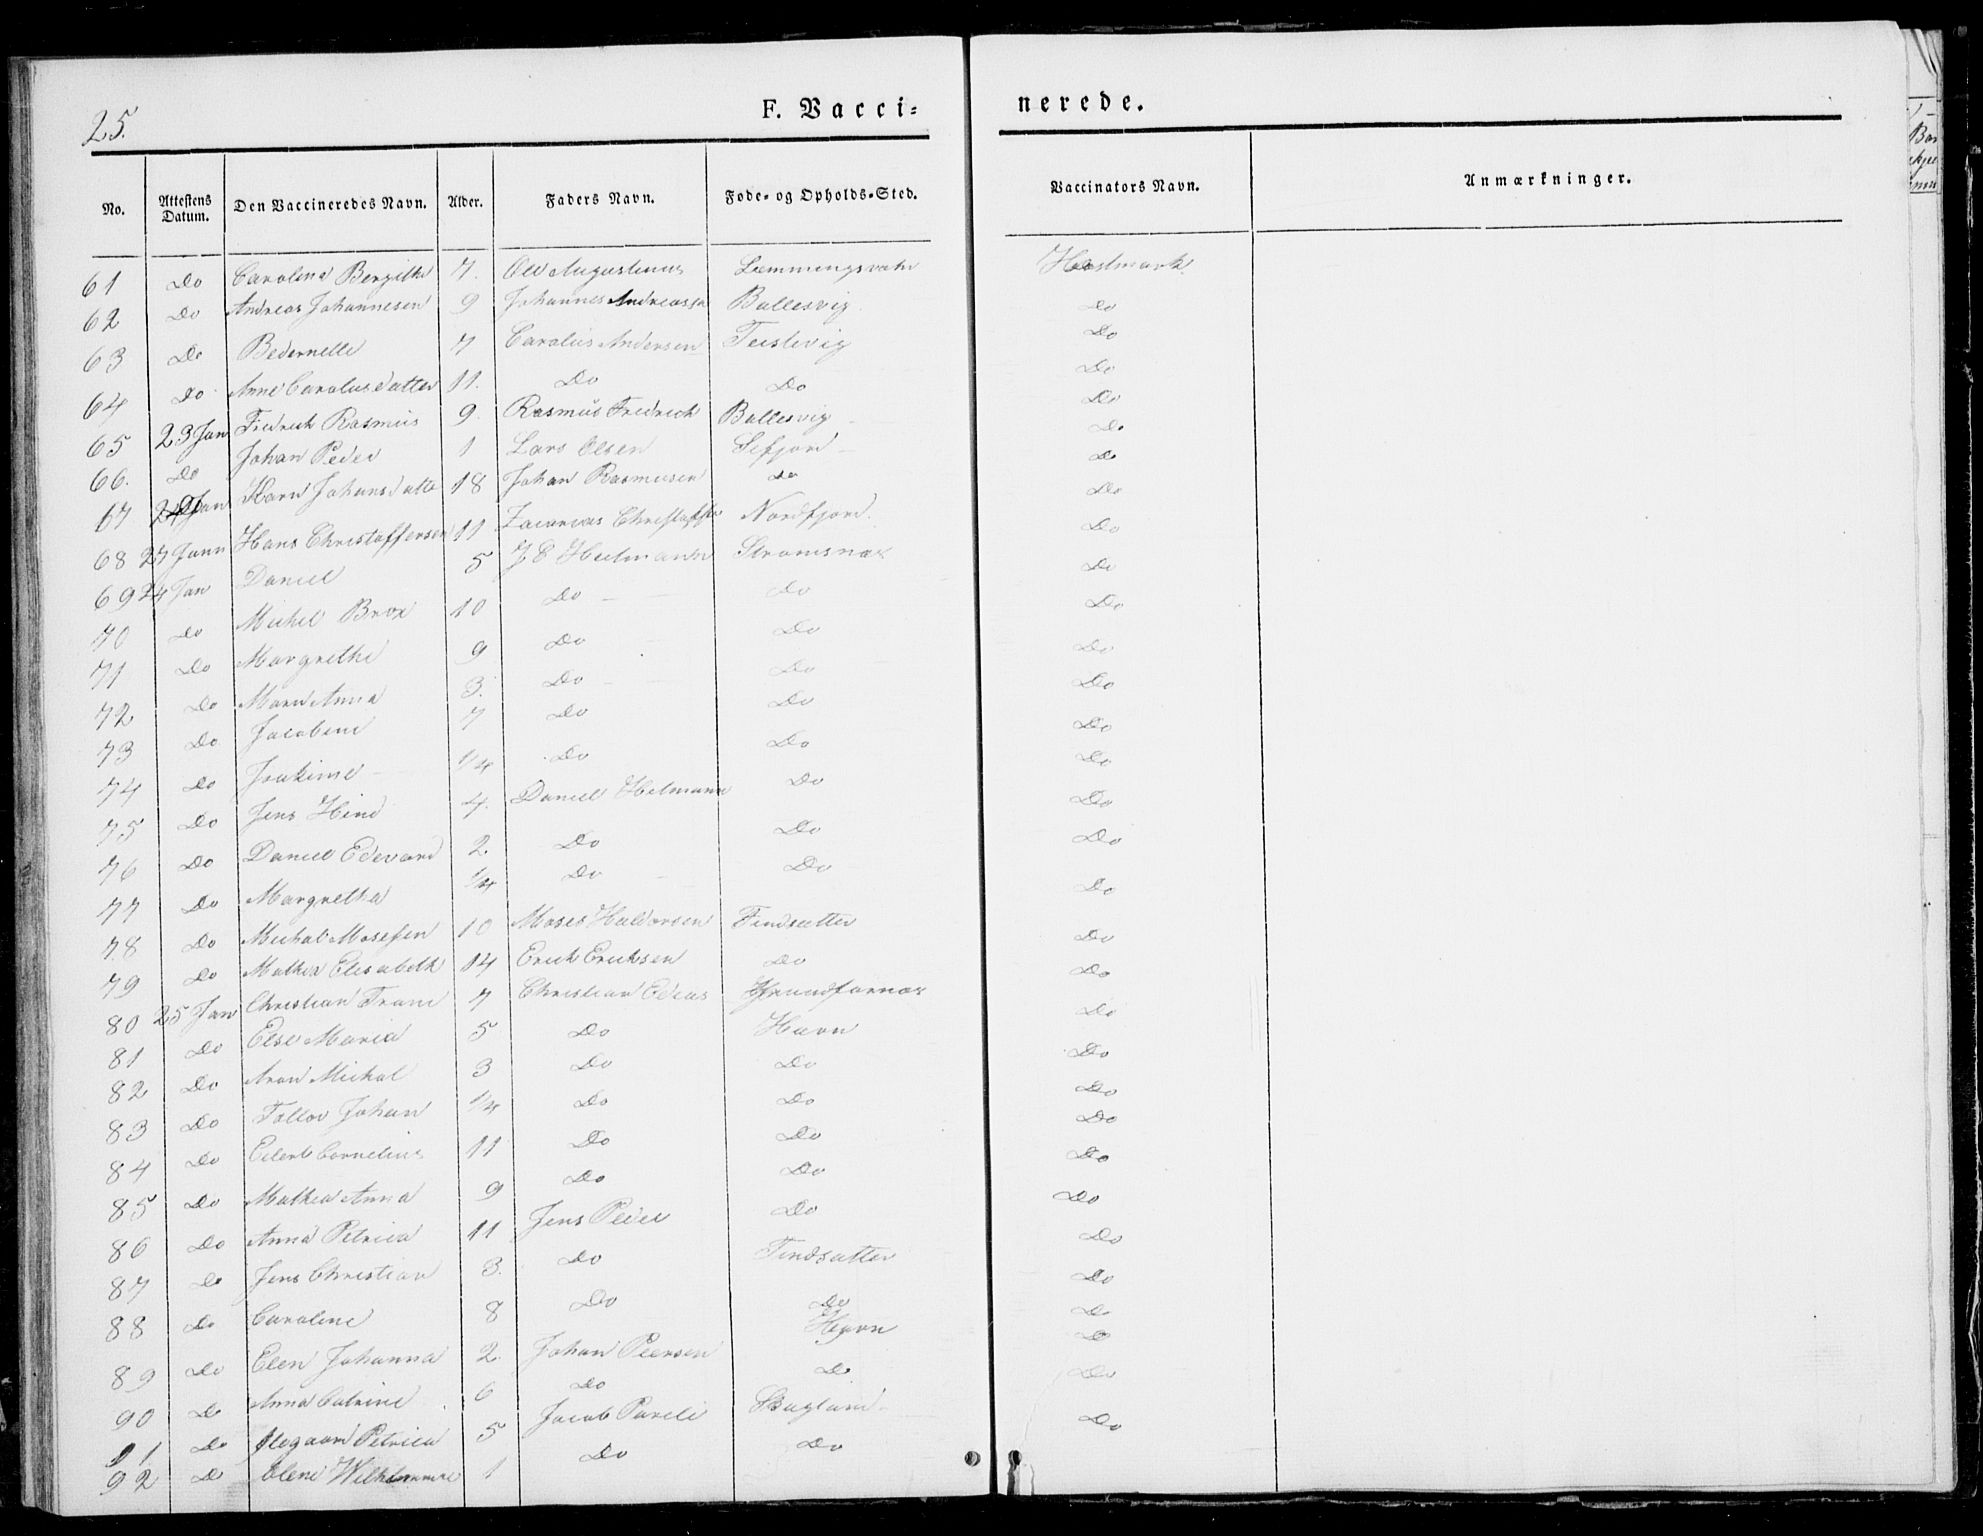 25.
F. Vacci=
nerede.
No. Attestens Datum. Den Vaccineredes Navn. Alder. Faders Navn. Føde- og Opholds-Sted. Vaccinators Navn. Anmærkninger.
61 Do Carolina Bergithe 7. Ole Augustinus Læmmingsvatn
62 Do Andreas Johannesen 9 Johannes Andreassen Ballesvig Do
63 Do 7 Carolus Andersen Teistevig Do
64 Do Anne Carolusdatter 11. Do Do Do
65 23 Jan Fredrich Rasmus 9. Rasmus Fredrich Ballesvig Do
66. Do Johan Peder 1 Lars Olsen Sifjord Do
67 Jan Karn Johansdatte 18 Johan Rasmusen Do Do
68 27 Jann Hans Christoffersen 11 Zacarias Christoffer Nordfjord. Do
69 24 Jan Daniel 5 J E Heitmann Stromsnæs Do
70 Do Michel Brox 10 Do Do Do
71 Do Margrethe 9 Do Do Do
72 Do Maren Anna 3. Do Do Do
73 Do Jacobine 7 Do Do Do
74 Do Joakime 1/4 Do Do Do
75 Do Jens Hind 4. Daniel Hetmann Do Do
76 Do Daniel Edevard 2. Do Do Do
77 Do Margretha 1/4 Do Do Do
78 Do Michal Mosesen 10 Moses Haldorsen Tindsætter Do
79 Do Mathea Elisabeth 14 Erich Erichsen Do Do
80 25 Jan Christian Trane 7 Christian Edeas Grundfarnæs Do
81 Do Else Maria 5 Do Havn Do
82 Do Aron Michal 3 Do Do Do
83 Do Tollov Johan 1/4 Do Do Do
84 Do Eilert Cornelius 11 Do Do Do
85 Do Mathea Anna 9 Do Do Do
86 Do Anna Petrica 11 Jens Peder Do Do
87 Do Jens Christian 3. Do Tindsætter Do
88 Do Caroline 8 Do Do Do
89 Do Elen Johanna 2. Johan Peersen Havn Do
90 Do Anna Catrine 6 Do Do Do
91 Do Petrica 5 Jacob Pareli Skagland Do
92 Do Elene Wilhelmine 1 Do Do